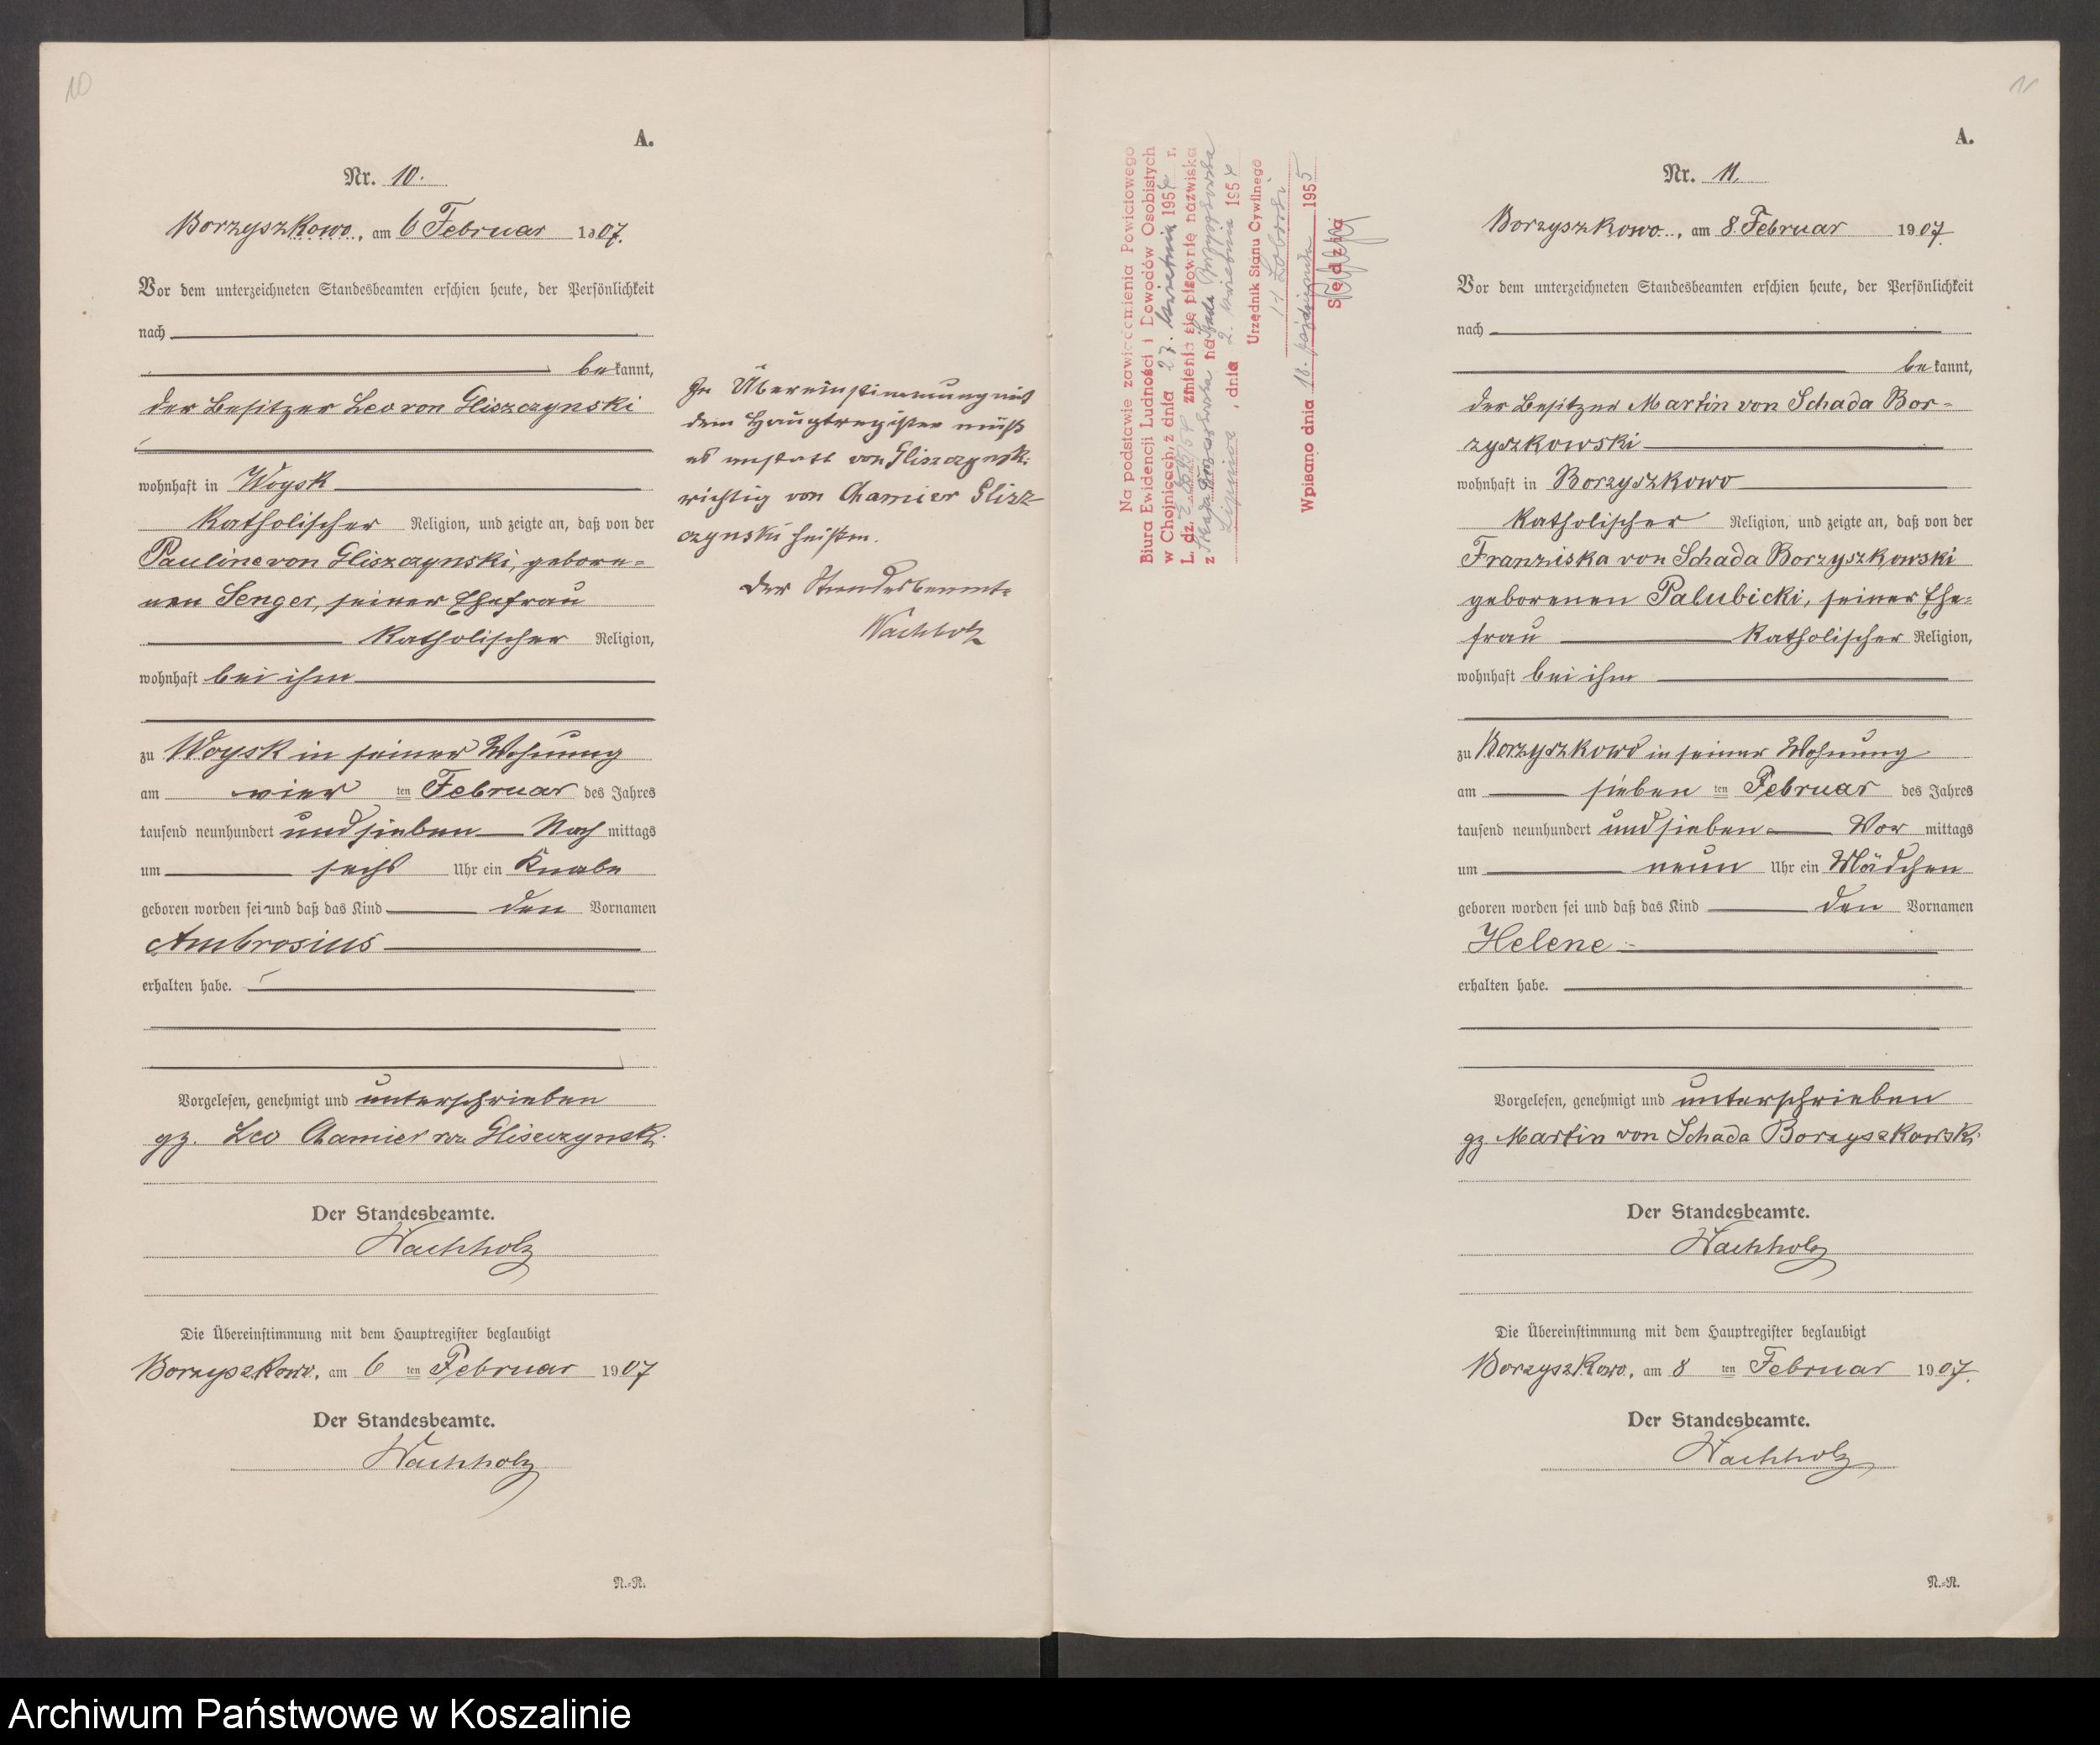 10
A.
Nr. 10.
Borzyszkowo, am 6 Februar 1907.
Vor dem unterzeichneten Standesbeamten erschien heute, der Persönlichkeit
nach
bekannt,
der Besitzer Leo von Gliszczynski
wohnhaft in Woysk
katholischer Religion, und zeigte an, daß von der
Pauline von Gliszczynski, gebore=
nen Senger, seiner Ehefrau
katholischer Religion,
wohnhaft bei ihm
zu Woysk in seiner Wohnung
am vier ten Februar des Jahres
tausend neunhundert und sieben Nach mittags
um sechs Uhr ein Knabe
geboren worden sei und daß das Kind den Vornamen
Ambrosius
erhalten habe.
Vorgelesen, genehmigt und unterschrieben
gz. Leo Chamier von Gliszczynski
Der Standesbeamte.
Wachholz
Die Übereinstimmung mit dem Hauptregister beglaubigt
Borzyszkowo, am 6 ten Februar 1907
Der Standesbeamte.
Wachholz
N.=R.
In Übereinstimmung mit
dem Hauptregister muß
es anstatt von Gliszczynski
richtig von Chamier Glisz=
czynski heißen.
Der Standesbeamte
Wachholz
Na podstawie zawiadomienia Powiatowego
Biura Ewidencji Ludności i Dowodów Osobistych
w Chojnicach, z dnia 27. kwietnia 1954 r.
L. dz. zmienia się pisownię nazwiska
z na
Lipnica, dnia 2. 1954
Urzędnik Stanu Cywilnego
Wpisano dnia 18. października 1955
Sędzia
11
A.
Nr. 11.
Borzyszkowo, am 8. Februar 1907.
Vor dem unterzeichneten Standesbeamten erschien heute, der Persönlichkeit
nach
bekannt,
der Besitzer Martin von Schada Bor=
zyszkowski
wohnhaft in Borzyszkowo
katholischer Religion, und zeigte an, daß von der
Franziska von Schada Borzyszkowski
geborenen Palubicki, seiner Ehe=
frau katholischer Religion,
wohnhaft bei ihm
zu Borzyszkowo in seiner Wohnung
am sieben ten Februar des Jahres
tausend neunhundert und sieben Vor mittags
um neun Uhr ein Mädchen
geboren worden sei und daß das Kind den Vornamen
Helene
erhalten habe.
Vorgelesen, genehmigt und unterschrieben
gz. Martin von Schada Borzyszkowski
Der Standesbeamte.
Wachholz
Die Übereinstimmung mit dem Hauptregister beglaubigt
Borzyszkowo, am 8 ten Februar 1907.
Der Standesbeamte.
Wachholz
N.=R.
Archiwum Państwowe w Koszalinie